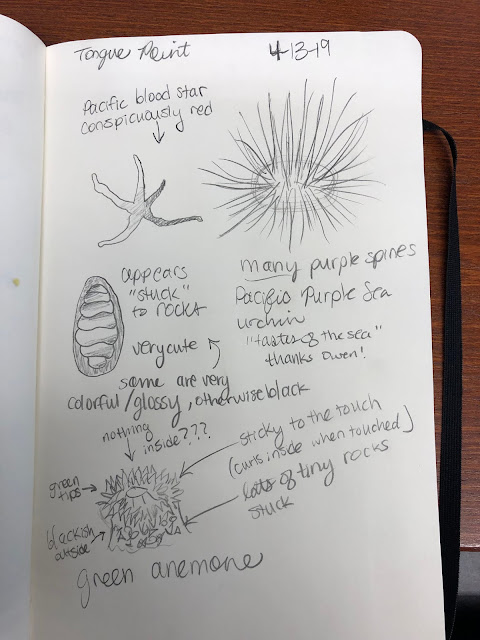 Tongue Point 4-13-19
Pacific blood star
conspicuously red
many purple spines
Pacific Purple Sea
urchin
"tastes of the sea"
thanks Owen!
appears
"stuck"
to rocks
very cute
some are very
colorful/glossy, otherwise black
nothing
inside???
green
tips
blackish
outside
sticky to the touch
(curls inside when touched)
lots of tiny rocks
stuck
green anemone